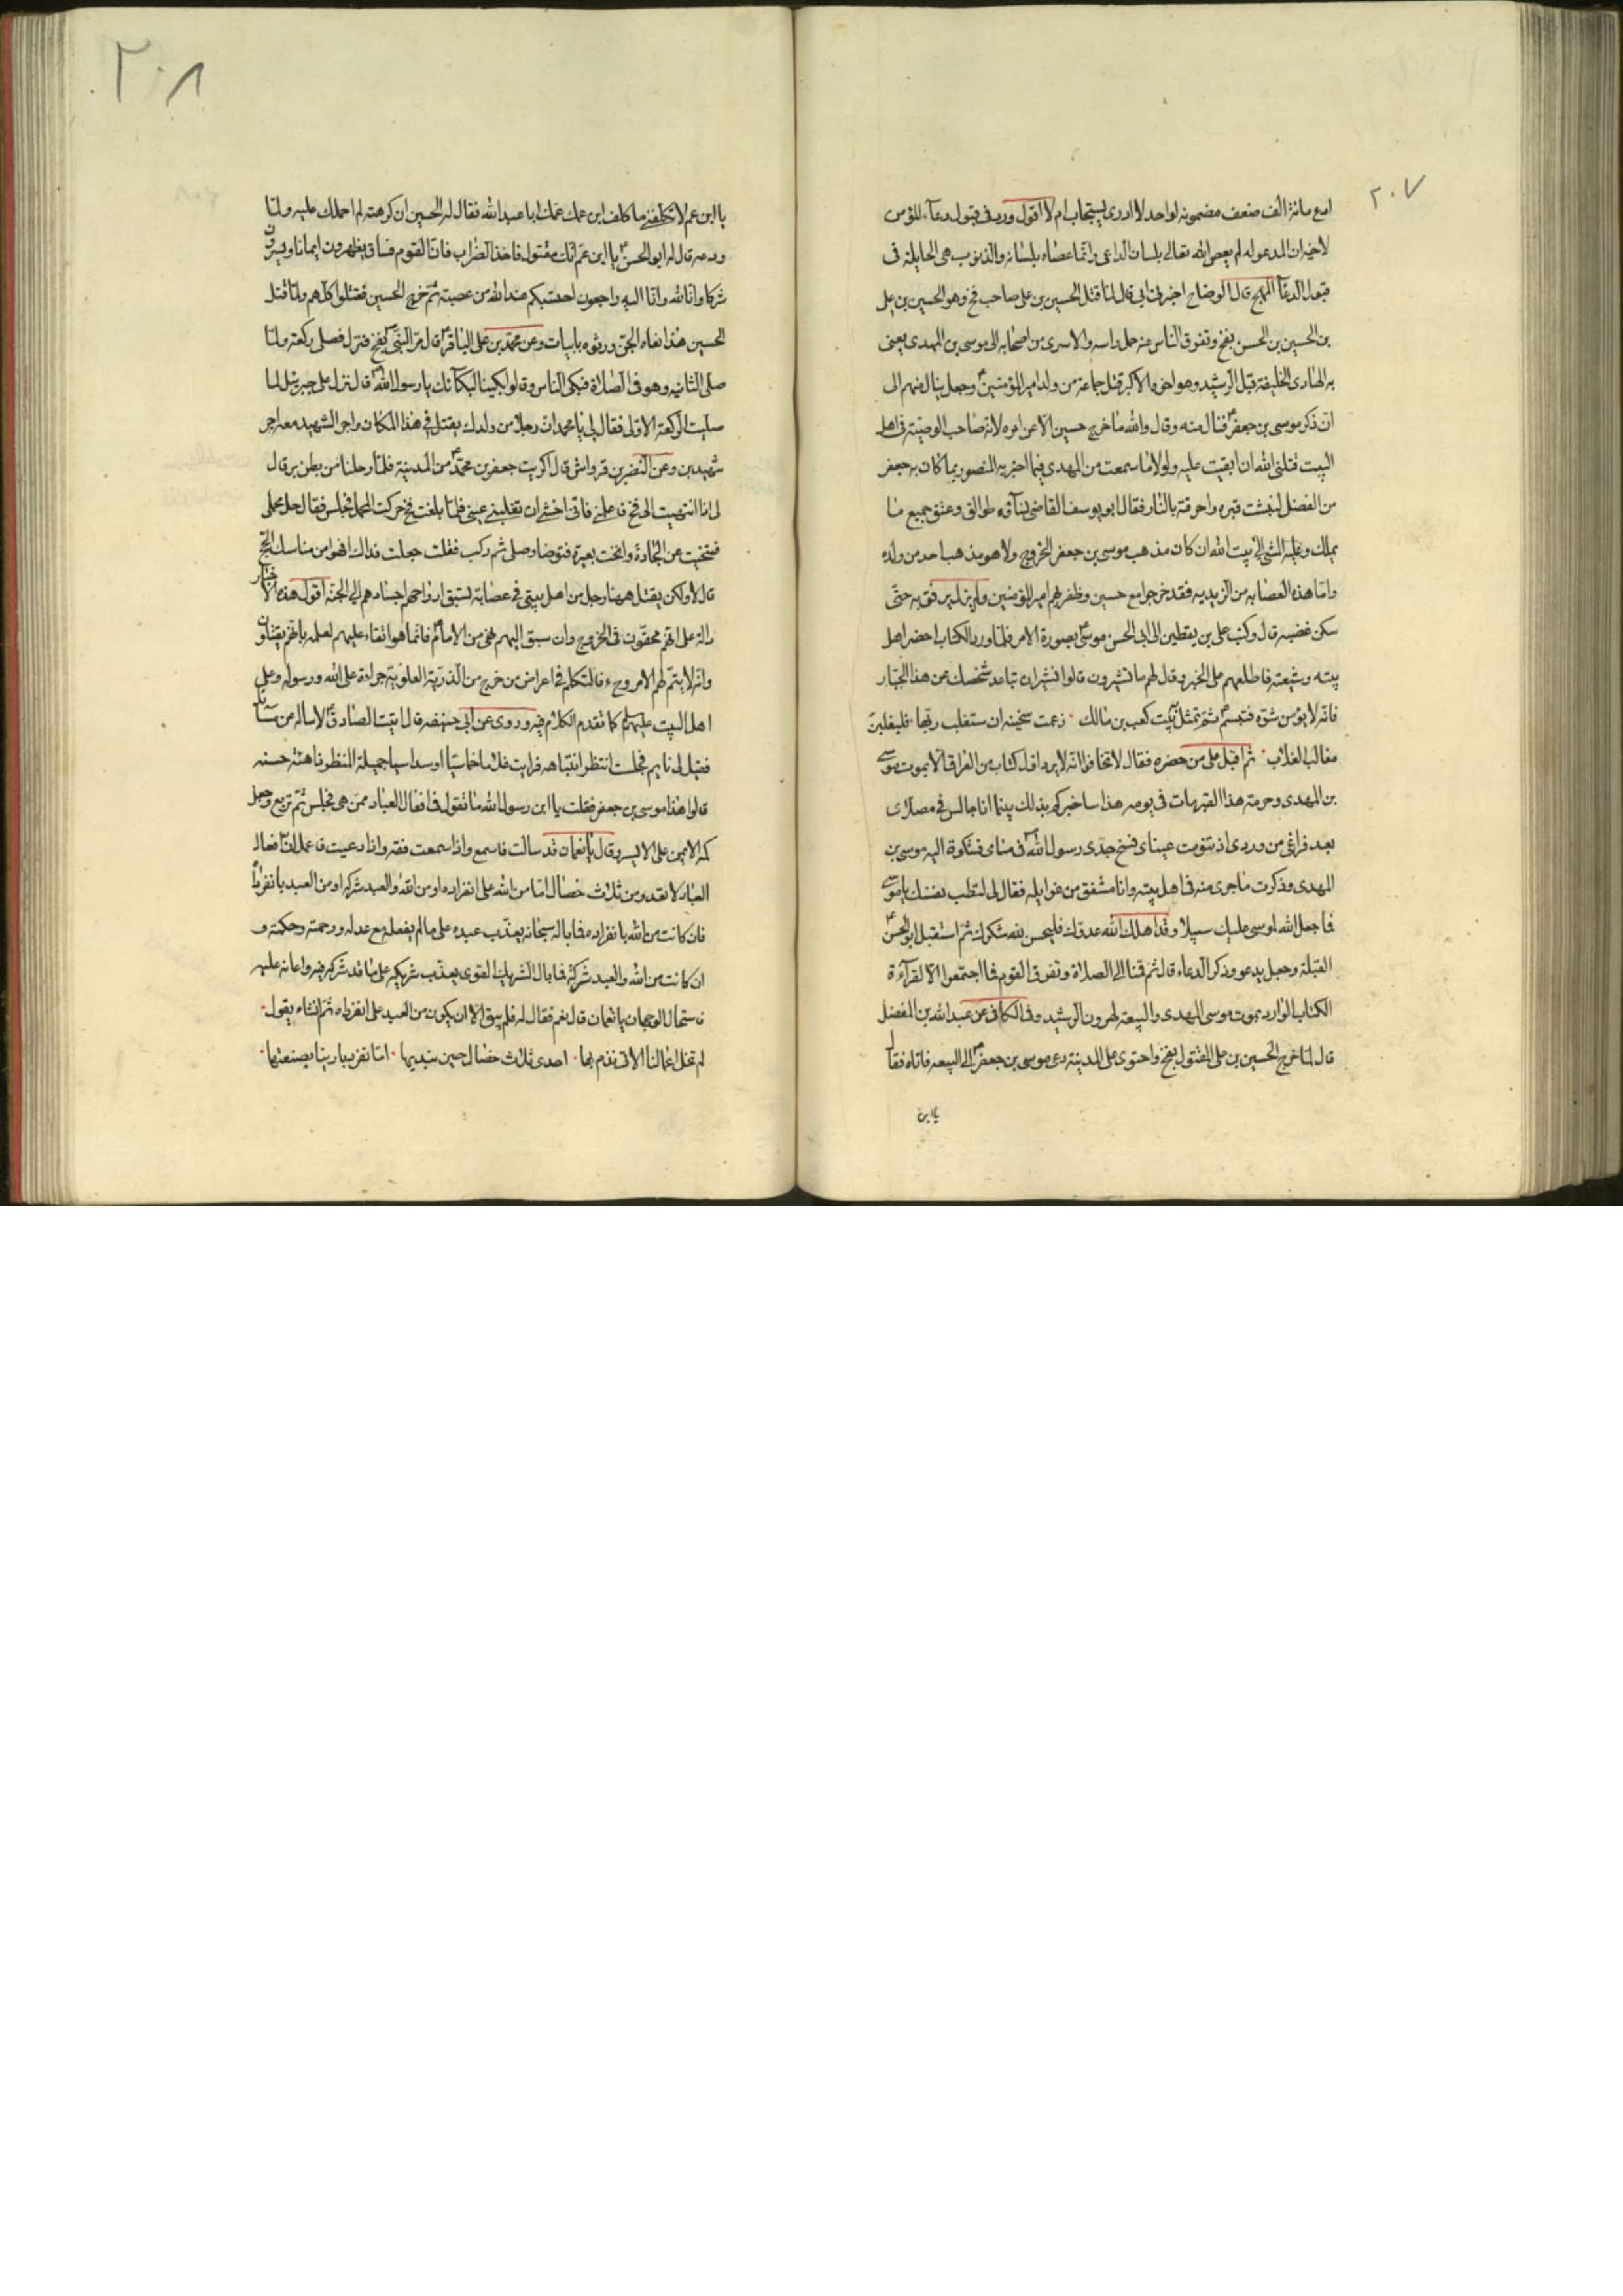 ٢٠٧
ادع مائة الف ضعف مضمونه لواحد لا ادرى يستجاب ام لا اقول ورد فى قبول دعآء المؤمن
لاخيه ان المدعو له لم يعص الله تعالى بلسان الداعى وانما عصاه بلسانه والذنوب هى الحايلة فى
قبول الدعآ المهج قال الوضاح اخبرنى ابى قال لما قتل الحسين بن على صاحب فخ وهو الحسين بن على
بن الحسين بن الحسن بفخ وتفرق الناس عنه حمل راسه والاسرى من اصحابه الى موسى بن المهدى يعنى
به الهادى الخليفة قبل الرشيد وهو اخوه الاكبر قتل جماعة من ولد امير المؤمنين ع وجعل ينال منهم الى
ان ذكر موسى بن جعفر ع فنال منه وقال والله ما خرج حسين الا عن امره لانه صاحب الوصية فى اهل
البيت قتلنى الله ان ابقيت عليه ولولا ما سمعت من المهدى فيما اخبر به المنصور بما كان به جعفر
من الفضل لنبشت قبره واحرقته بالنار فقال ابو يوسف القاضى نسآؤه طوالق وعتق جميع ما
يملك وعليه المشى الى بيت الله ان كان مذهب موسى بن جعفر الخروج ولا هو مذهب احد من ولده
واما هذه العصابه من الزيديه فقد خرجوا مع حسين وظفر بهم امير المؤمنين ولم يزل يرفق به حتى
سكن غضبه قال وكتب على بن يقطين الى ابى الحسن موسى ع بصورة الامر فلما ورد الكتاب احضر اهل
بيته وشيعته فاطلعهم على الخبر وقال لهم ما تشيرون قالوا نشير ان تباعد شخصك عن هذا الجبار
فانه لا يؤمن شره فتبسم ثم تمثل ببيت كعب بن مالك ٠ زعمت سخينه ان ستغلب ربها ٠ فليغلبن
مغالب الغلاب ٠ ثم اقبل على من حضره فقال لا تخافوا انه لا يرد اول كتاب من العراق الا بموت موسى
بن المهدى وحرمة هذا القبر مات فى يومه هذا ساخبركم بذلك بينما انا جالس فى مصلاى
بعد فراغى من وردى اذ تنومت عيناى فسنح جدى رسول الله ص فى منامى فشكوت اليه موسى بن
المهدى وذكرت ما جرى منه فى اهل بيته وانا مشفق من غوايله فقال لى لتطب نفسك يا موسى
فما جعل الله لموسى عليك سبيلا وقد اهلك الله عدوك فليحسن لله شكرك ثم استقبل ابو الحسن ع
القبلة وجعل يدعو وذكر الدعاء قال ثم قمنا الى الصلاة وتفرق القوم فما اجتمعوا الا لقرآءة
الكتاب الوارد بموت موسى المهدى والبيعة لهرون الرشيد وفى الكافى عن عبد الله بن المفضل
قال لما خرج الحسين بن على المقتول بفخ واحتوى على المدينة دعى موسى بن جعفر ع الى البيعه فاتاه فقال
يا ابن
٢٠٨
يا ابن عم لا تكلفنى ما كلف ابن عمك عمك ابا عبد الله فقال له الحسين ان كرهته لم احملك عليه ولما
ودعه قال له ابو الحسن ع يا ابن عم انك مقتول فاخذ الضراب فان القوم فساق يظهرون ايمانا ويسرون
شركا وانا لله وانا اليه راجعون احتسبكم عند الله من عصبة ثم خرج الحسين فقتلوا كلهم ولما قتل
الحسين هذا نعاه الجن ورثوه بابيات وعن محمد بن على الباقر ع قال مر النبى ص بفخ فنزل فصلى ركعة ولما
صلى الثانيه وهو فى الصلاة فبكى الناس وقالو لبكينا لبكآئك يا رسول الله ص قال نزل على جبرئيل لما
صليت الركعة الاولى فقال لى يا محمد ان رجلا من ولدك يقتل فى هذا المكان واجر الشهيد معه اجر
شهيدين وعن النضر بن قرواش قال اكريت جعفر بن محمد ع من المدينة فلما رحلنا من بطن مر قال
لى اذا انتهيت الى فخ فاعلمنى فانى اخشى ان تغلبنى عينى فلما بلغت فخ حركت المحمل فجلس فقال حل محملى
فتنحيت عن الجادة وانخت بعيره فتوضا وصلى ثم ركب فقلت جعلت فداك افهو من مناسك الحج
قال لا ولكن يقتل ههنا رجل من اهل بيتى فى عصابة تسبق ارواحهم اجسادهم الى الجنة اقول هذه الاخبار
دالة على انهم محقون فى الخروج وان سبق اليهم نهى من الامام ع فانما هو اتقاء عليهم لعلمه بانهم يقتلون
وانه لا يتم لهم الامر وح ء فالتكلم فى اعراض من خرج من الذرية العلوية جراءة على الله ورسوله وعلى
اهل البيت عليهم كما تقدم الكلام فيه وروى عن ابى حنيفه قال اتيت الصادق ع لاساله عن مسائل
فقيل لى نايم فجلست انتظر انتباهه فرايت غلاما خماسيا او سداسيا جميلة المنظر ذا هيئة حسنه
قالوا هذا موسى بن جعفر فقلت يا ابن رسول الله ما تقول فى افعال العباد ممن هى فجلس ثم تربع وجعل
كمه الايمن على الايسر وقال يا نعمان قد سالت فاسمع واذا سمعت فعه واذا وعيت فاعمل ان افعال
العباد لا تعدو من ثلاث خصال اما من الله على انفراده او من الله والعبد شركه او من العبد بانفراده
فان كانت من الله بانفراده فما باله سبحانه يعذب عبده على ما لم يفعله مع عدله ورحمته وحكمته و
ان كانت من الله والعبد شركة فما بال الشريك القوى يعذب شريكه على ما قد شركه فيه واعانه عليه
فاستحال الوجهان يا نعمان قال نعم فقال له فلم يبق الا ان يكون من العبد على انفراده ثم انشاء يقول ٠
لم تخل اعمالنا اللاتى نذم بها ٠ احدى ثلاث خصال حين نبديها ٠ اما تفرد بارينا بصنعتها ٠